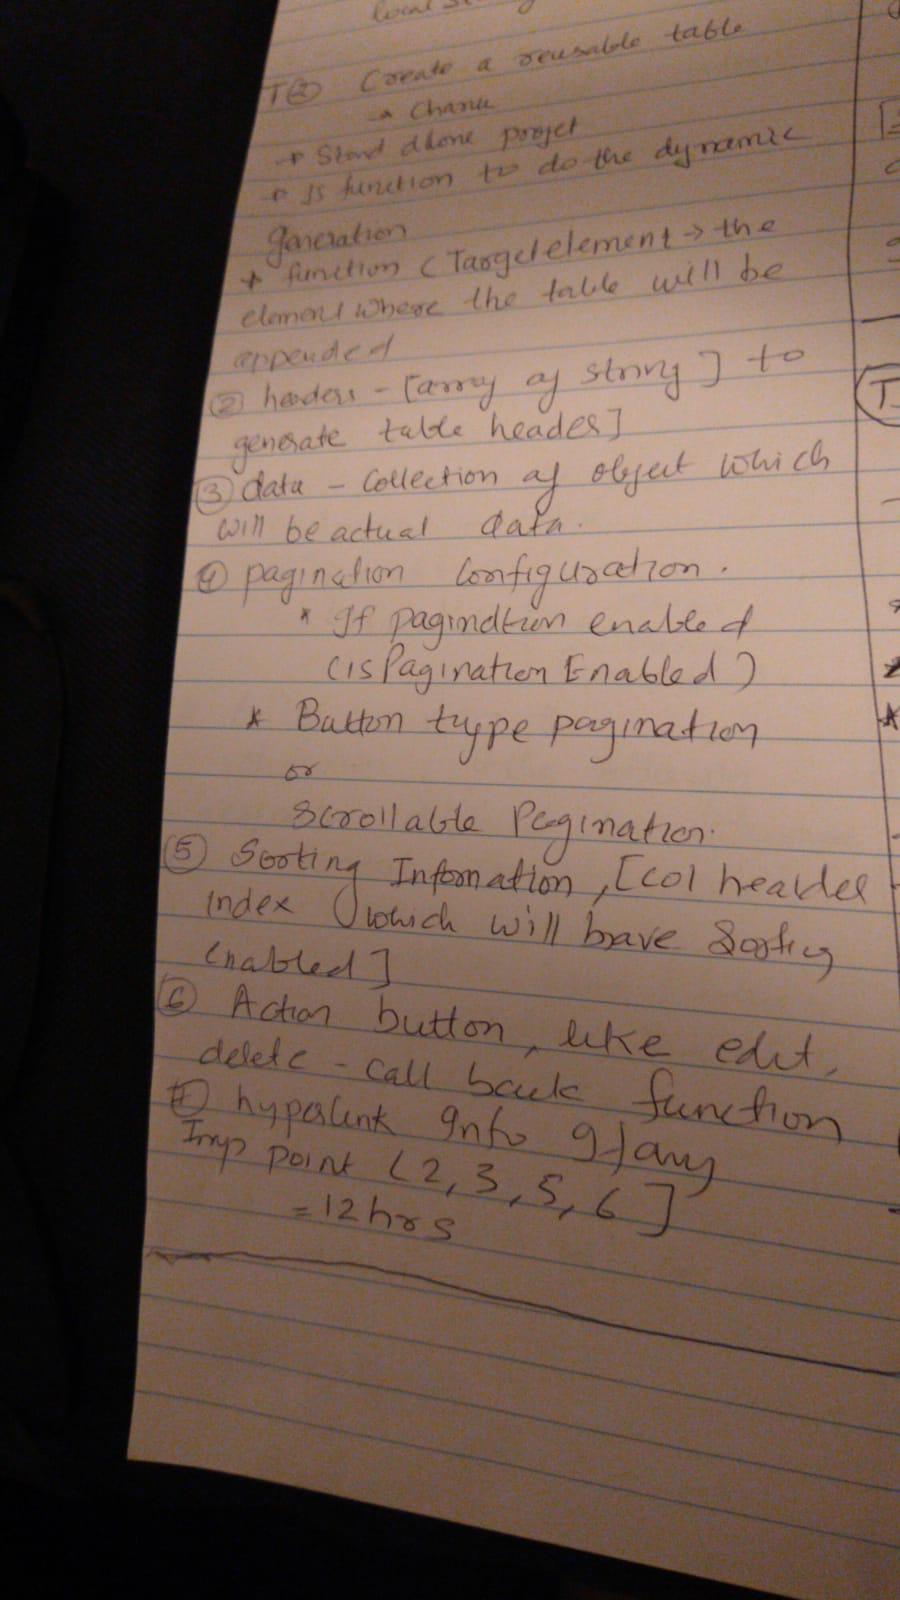 local
T② Create a reusable table
→ Stand alone projet
→ JS function to do the dynamic
generation
→ function (Targetelement → the
element where the table will be
appended
② headers - [array of string] to
generate table header]
③ data - Collection of object which
will be actual data.
④ pagination Configuration.
* If pagination enabled
(isPaginationEnabled)
* Button type pagination
or
Scrollable Pagination.
⑤ Sorting Information, [col header
index which will have Sorting
enabled]
⑥ Action button, like edit,
delete - call back function
⑦ hyperlink Info If any
Imp point (2, 3, 5, 6]
= 12 hrs